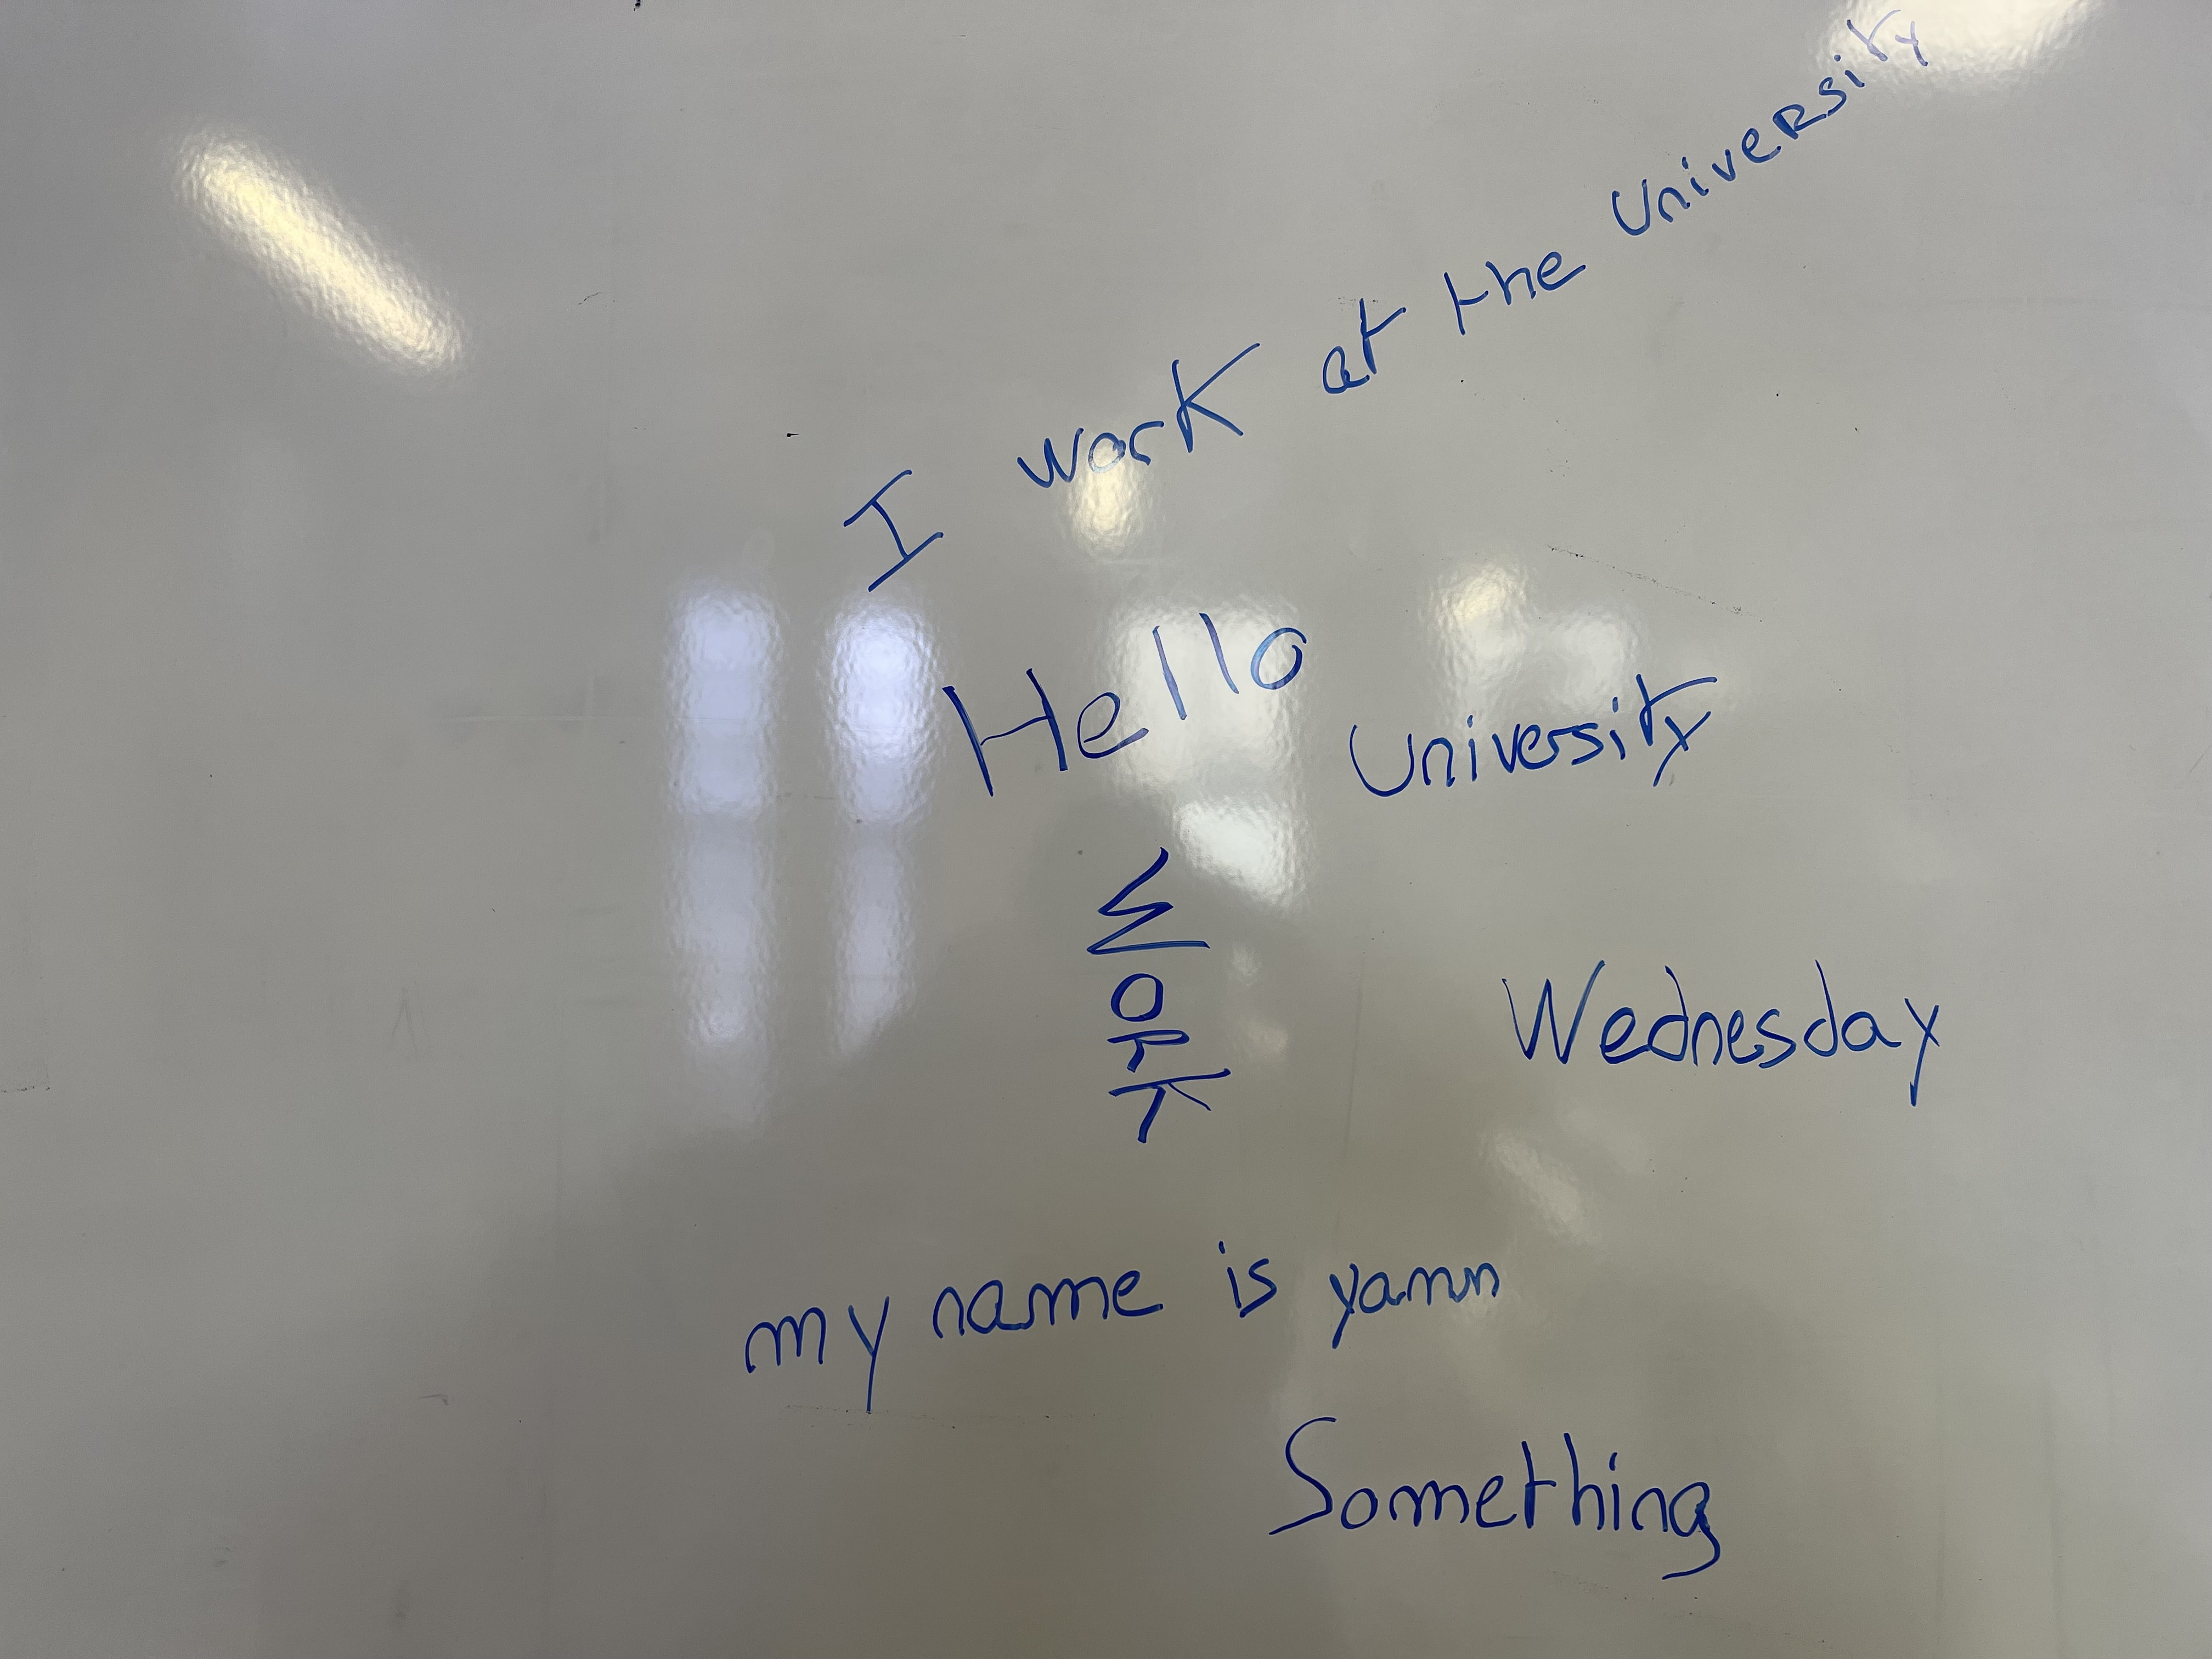 I work at the University
Hello
University
WORK
Wednesday
my name is yamn
Something